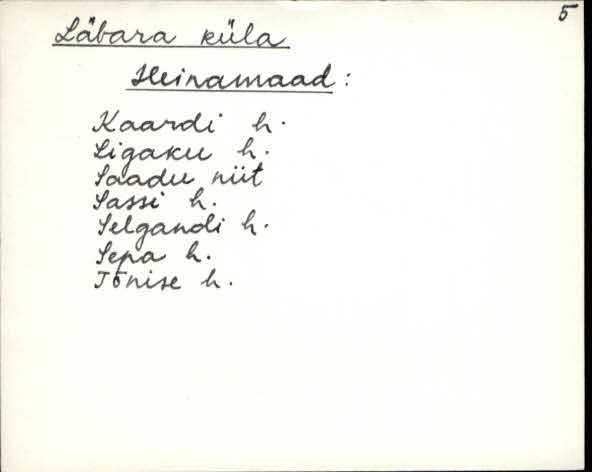 5
Läbara küla
Heinamaad:
Kaardi h.
Ligaku h.
Saadu niit
Sassi h.
Selgandi h.
Sepa h.
Tõnise h.